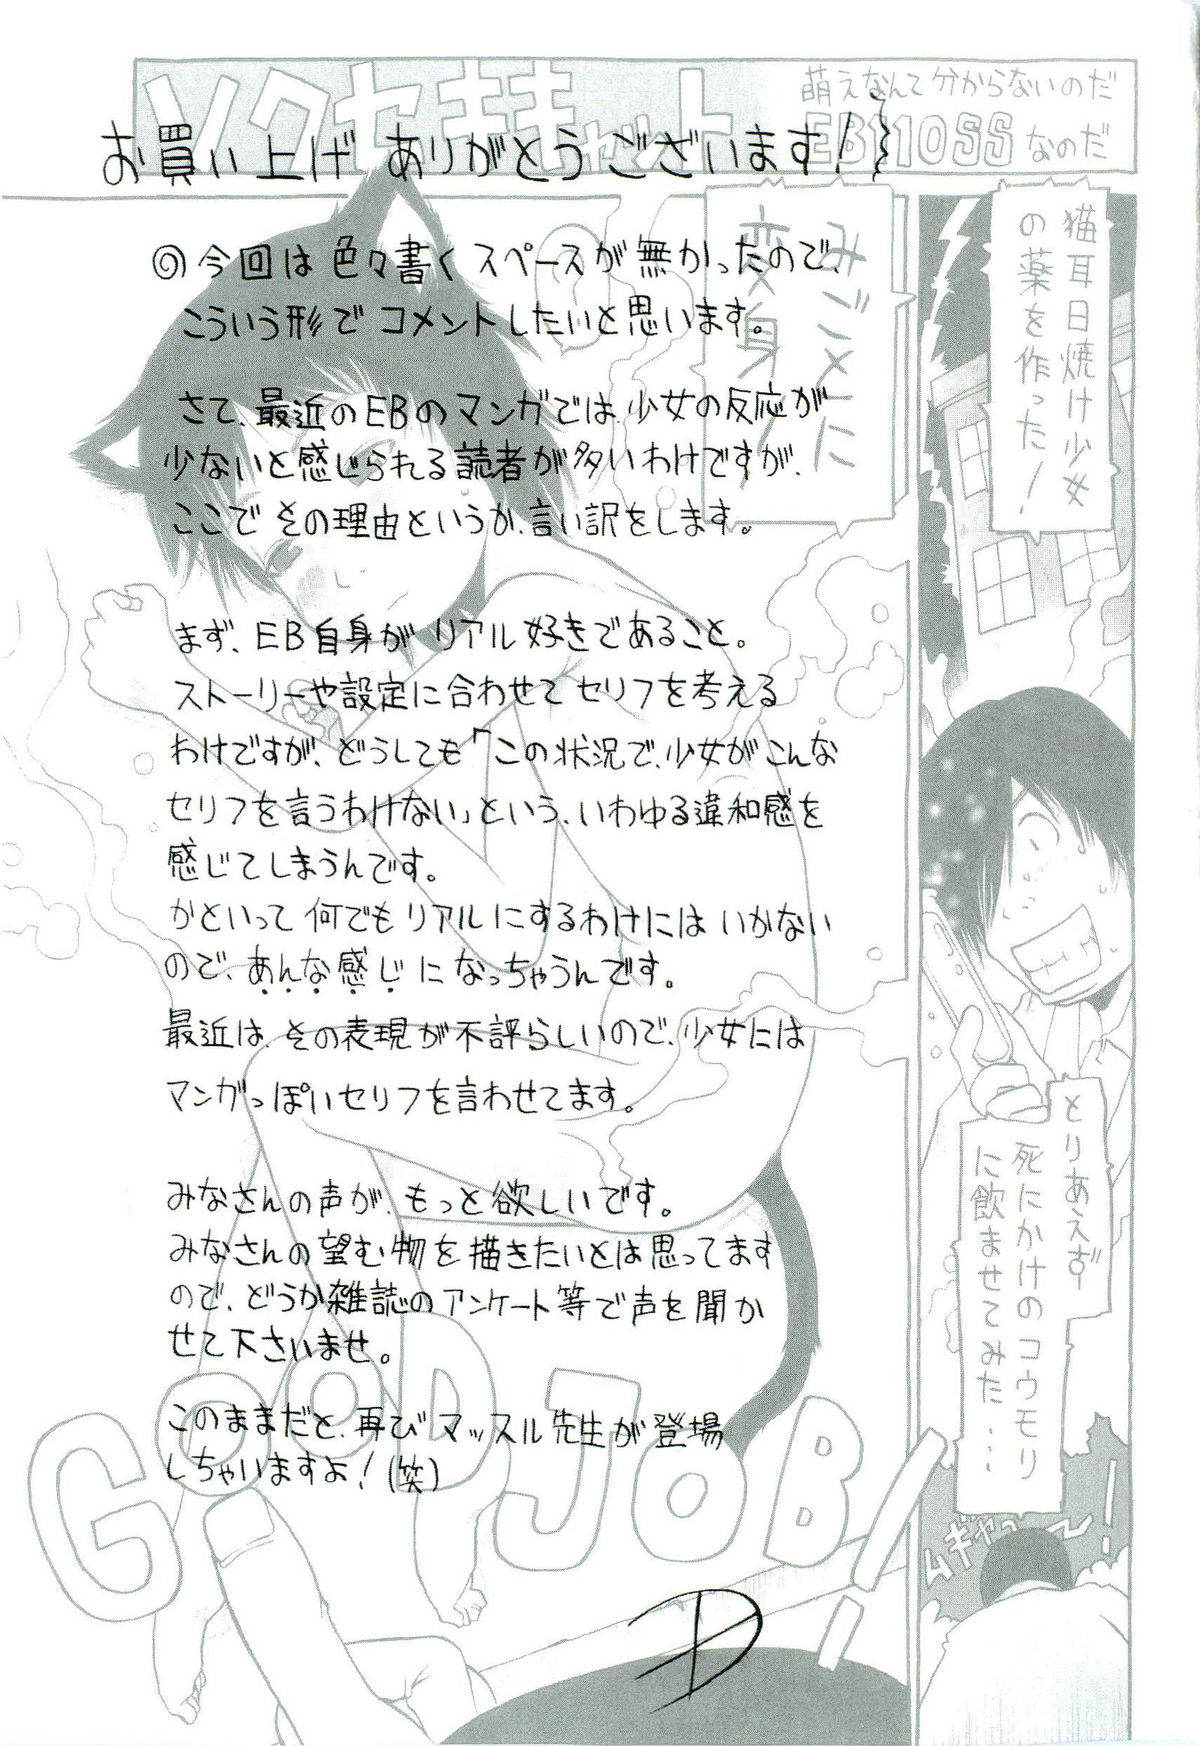 ソクセキキャット
萌えなんて分からないのだ
EB110SSなのだ
お買い上げありがとうございます!
◎今回は色々書くスペースが無かったので、
こういう形でコメントしたいと思います。
さて、最近のEBのマンガでは、少女の反応が
少ないと感じられる読者が多いわけですが、
ここでその理由というか、言い訳をします。
まず、EB自身がリアル好きであること。
ストーリーや設定に合わせてセリフを考える
わけですが、どうしても「この状況で、少女がこんな
セリフを言うわけない」という、いわゆる違和感を
感じてしまうんです。
かといって何でもリアルにするわけにはいかない
ので、あんな感じになっちゃうんです。
最近は、その表現が不評らしいので、少女には
マンガっぽいセリフを言わせてます。
みなさんの声が、もっと欲しいです。
みなさんの望む物を描きたいとは思ってます
ので、どうか雑誌のアンケート等で声を聞か
せて下さいませ。
このままだと、再びマッスル先生が登場
しちゃいますよ!(笑)
猫耳日焼け少女
の薬を作った!
とりあえず
死にかけのコウモリ
に飲ませてみた…
みごとに
変身!
GOOD JOB!!